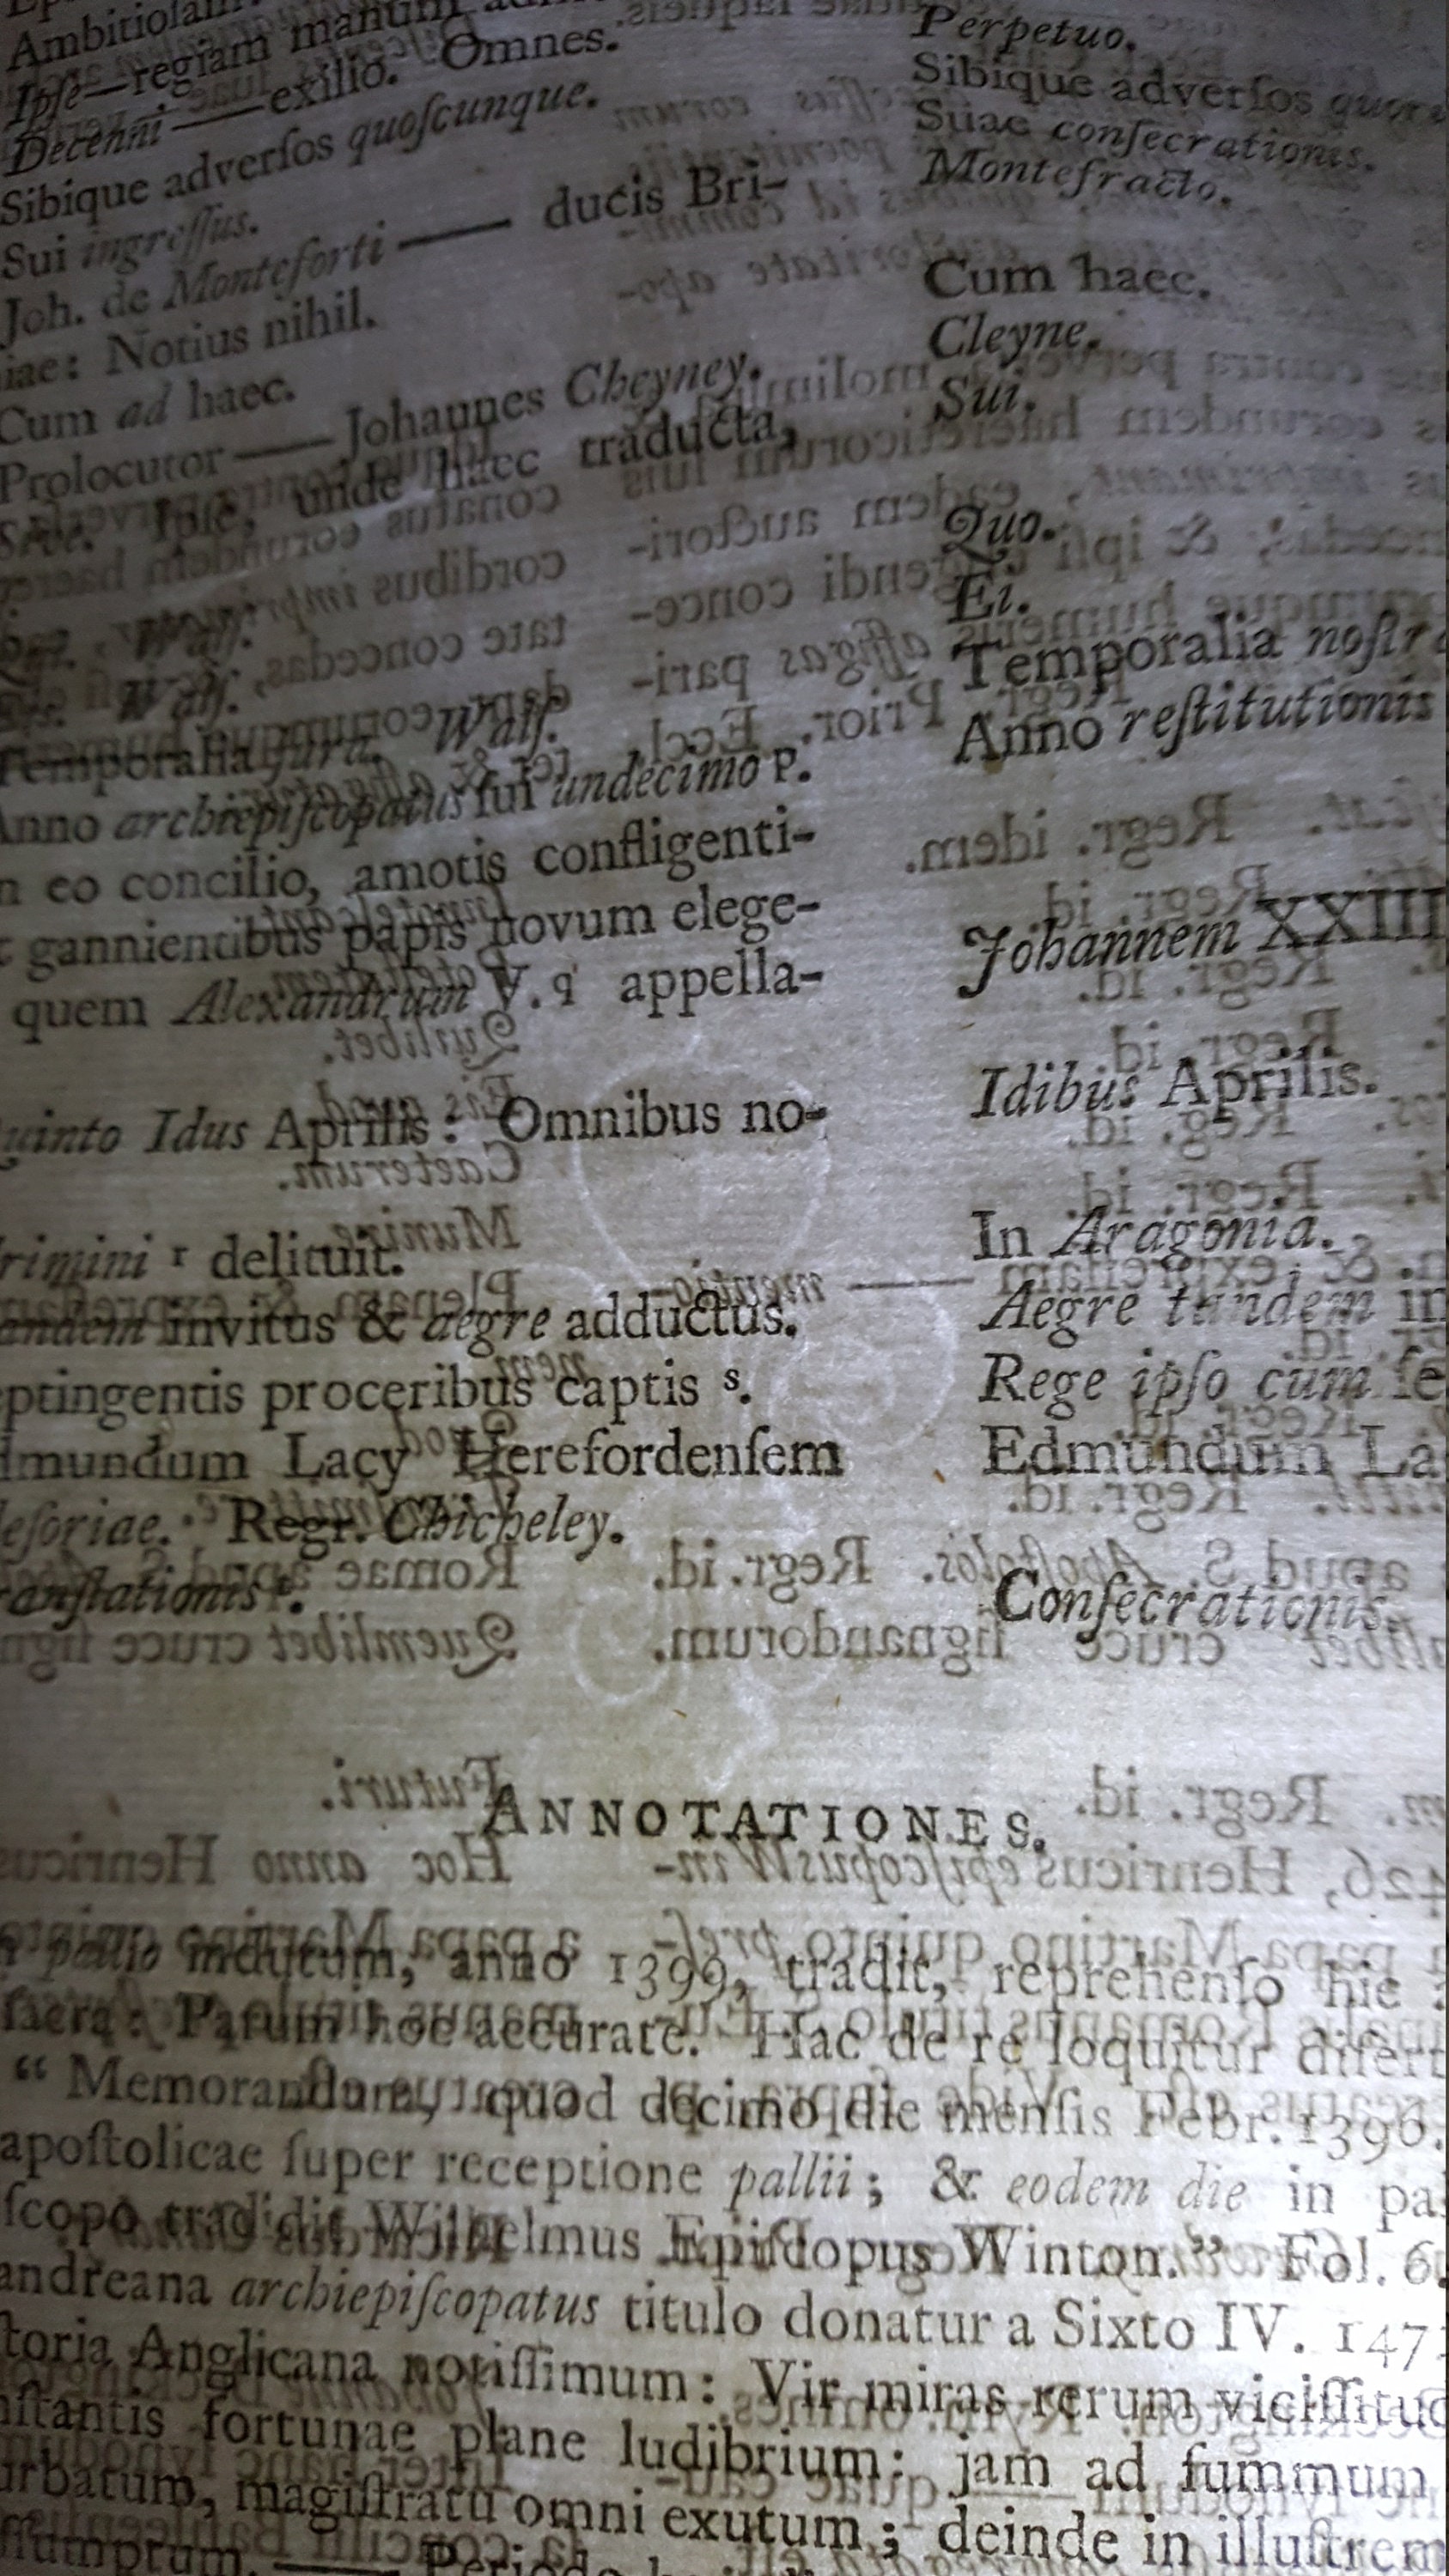 Ambitiosam.
Ipſe—regiam manum
Decenni——exilio. Omnes.
Sibique adverſos quoſcunque.
Sui ingreſſus.
Joh. de Monteforti —— ducis Bri-
iae: Notius nihil.
Cum ad haec.
Prolocutor——Johannes Cheyney.
Ipſe, unde haec traducta,
Walſ.
Walſ.
Temporalia jura. Walſ.
Anno archiepiſcopatus ſui undecimo p.
n eo concilio, amotis confligenti-
t gannientibus papis novum elege-
quem Alexandrum V. q appella-
uinto Idus Aprilis: Omnibus no-
rimini r delituit.
andem invitus & aegre adductus.
ptingentis proceribus captis s.
dmundum Lacy Herefordenſem
leſoriae. Regr. Chicheley.
ranſlationis t.
Perpetuo.
Sibique adverſos
Suae conſecrationis.
Montefracto.
Cum haec.
Cleyne.
Sui.
Quo.
Ei.
Temporalia noſtra
Anno reſtitutionis
Johannem XXIII
Idibus Aprilis.
In Aragonia.
Aegre tandem in
Rege ipſo cum ſe
Edmundum La
Conſecrationis.
ANNOTATIONES.
pallio indutum, anno 1399, tradit, reprehenſo hic
ſacra: Parum hoc accurate. Hac de re loquitur diſert
“ Memorandum, quod decimo die menſis Febr. 1396.
apoſtolicae ſuper receptione pallii; & eodem die in pa
ſcopo tradidit Wilhelmus Epiſcopus Winton.” Fol. 6.
andreana archiepiſcopatus titulo donatur a Sixto IV. 147
toria Anglicana notiſſimum: Vir miras rerum viciſſitud
nſtantis fortunae plane ludibrium: jam ad ſummum
urbatum, magiſtratu omni exutum; deinde in illuſtrem
ſſumptum. ——